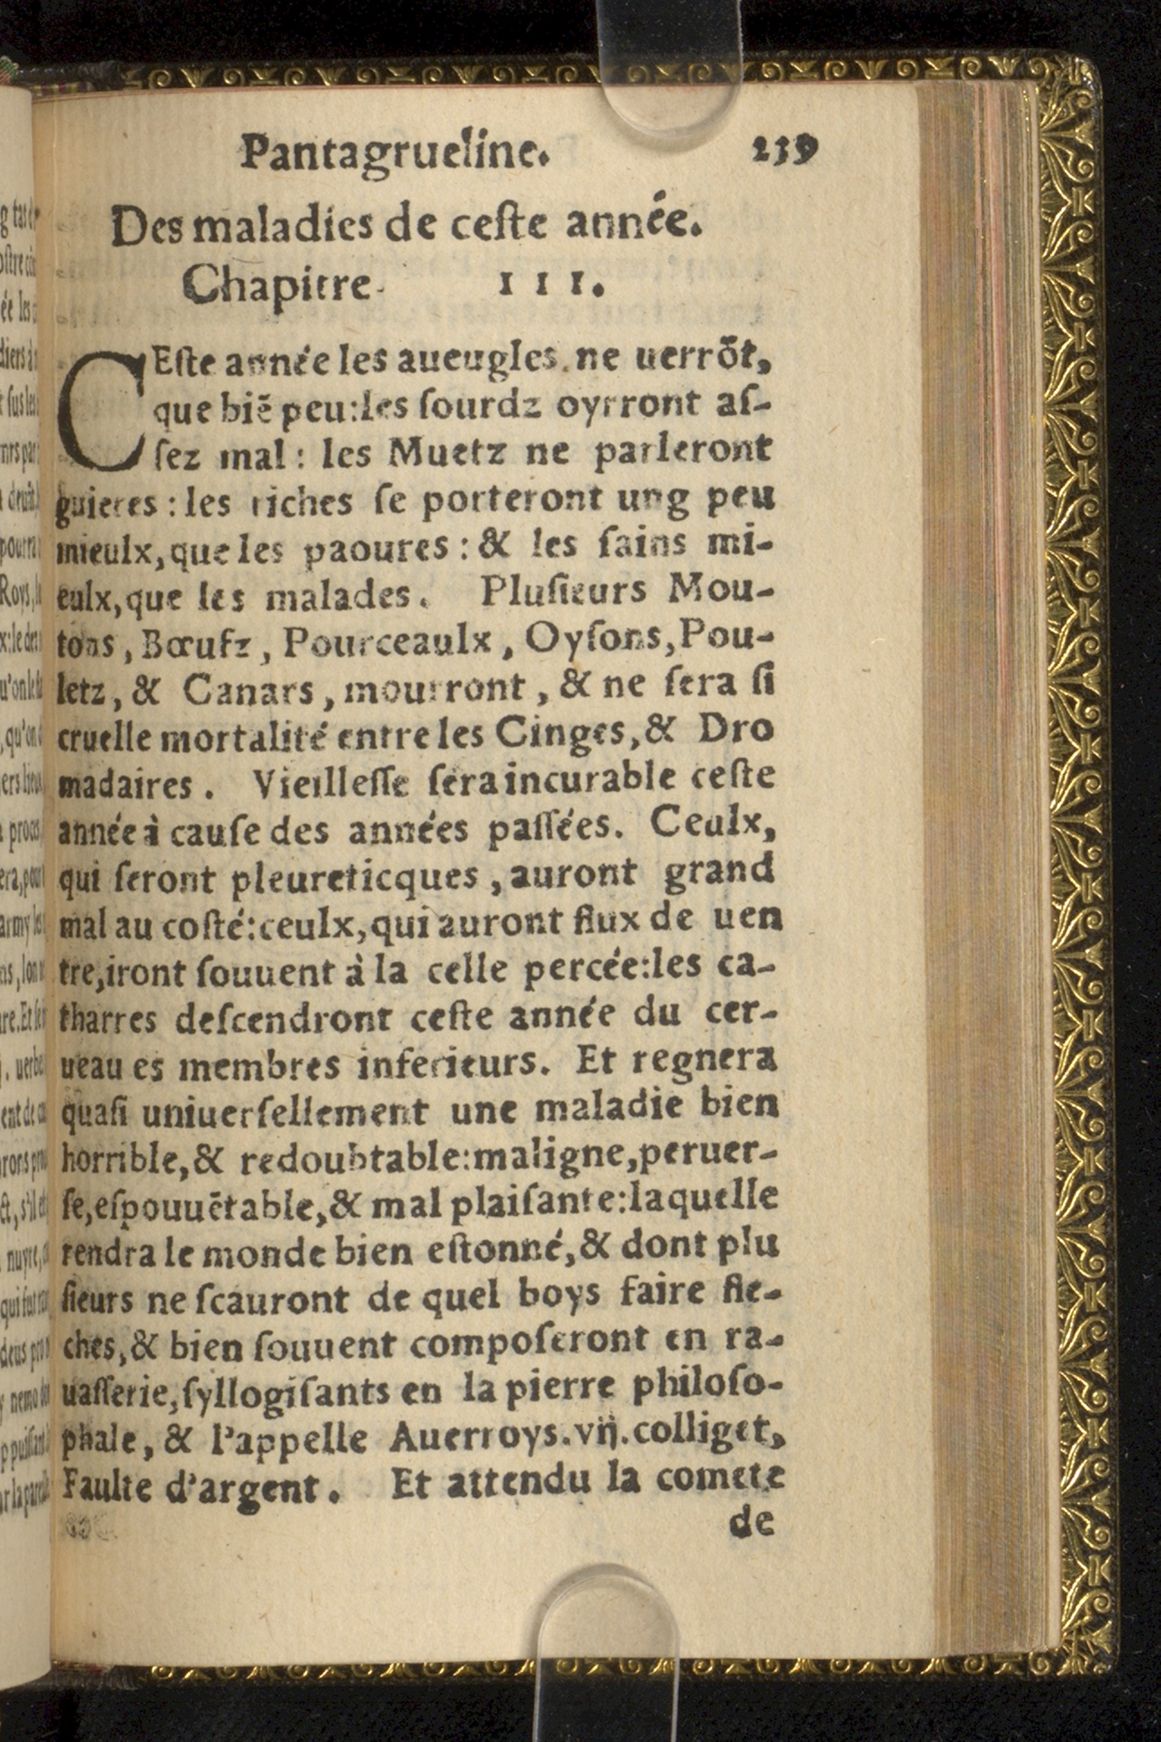 Pantagrueline. 239
Des maladies de ceſte année.
Chapitre. III.
CEſte année les aueugles ne uerrõt,
que biẽ peu:les ſourdz oyrront aſ-
ſez mal: les Muetz ne parleront
guieres: les riches ſe porteront ung peu
mieulx, que les paoures: & les ſains mi-
eulx, que les malades. Pluſieurs Mou-
tons, Bœufz, Pourceaulx, Oyſons, Pou-
letz, & Canars, mourront, & ne ſera ſi
cruelle mortalité entre les Cinges, & Dro
madaires. Vieilleſſe ſera incurable ceſte
année à cauſe des années paſſées. Ceulx,
qui ſeront pleureticques, auront grand
mal au coſté:ceulx, qui auront flux de uen
tre, iront ſouuent à la celle percée:les ca-
tharres deſcendront ceſte année du cer-
ueau es membres inferieurs. Et regnera
quaſi uniuerſellement une maladie bien
horrible, & redoubtable:maligne, peruer-
ſe, eſpouuẽtable, & mal plaiſante:laquelle
rendra le monde bien eſtonné, & dont plu
ſieurs ne ſcauront de quel boys faire fle-
ches, & bien ſouuent compoſeront en ra-
uaſſerie, ſyllogiſants en la pierre philoſo-
phale, & l'appelle Auerroys.vij.colliget,
Faulte d'argent. Et attendu la comete
de